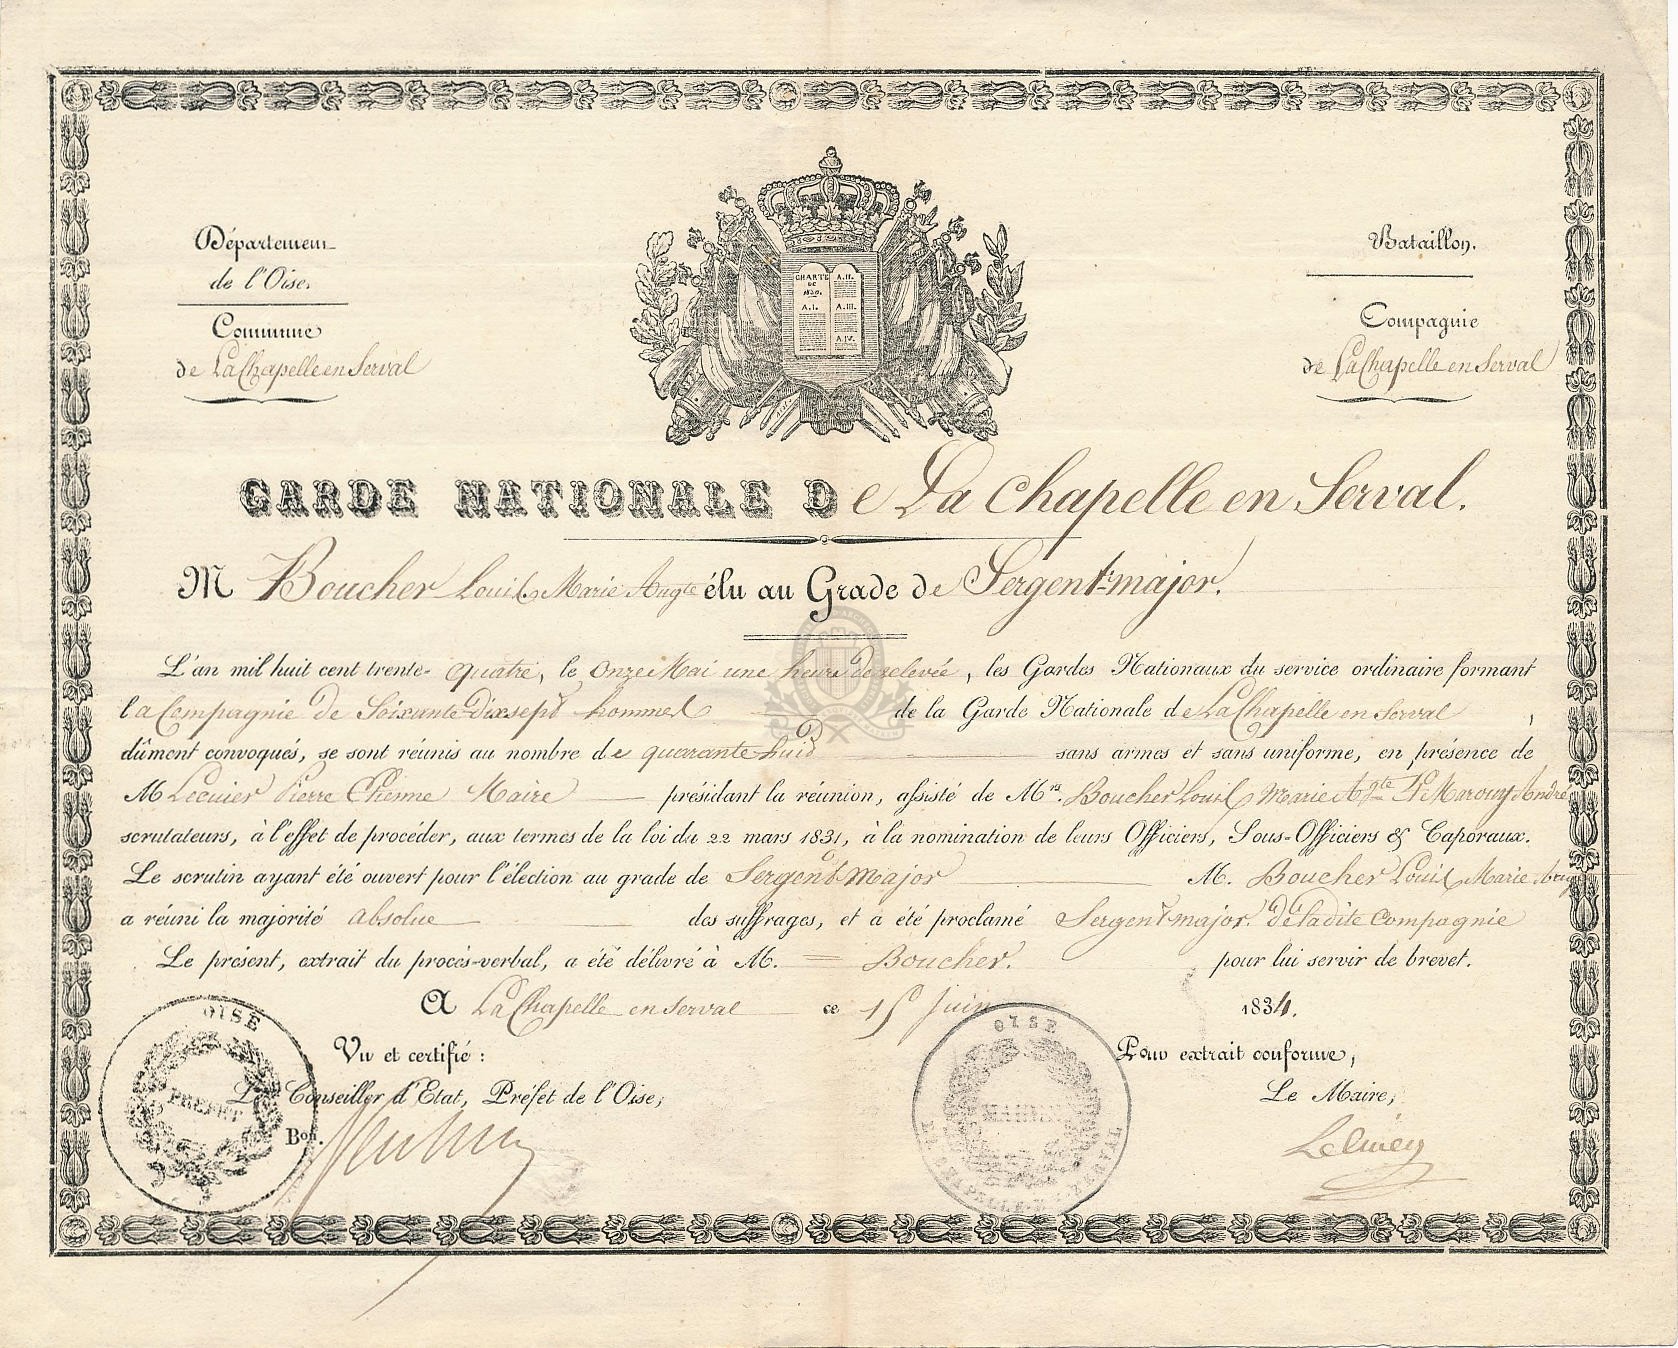 Département
de l'Oise.
Commune
de La Chapelle en Serval
Bataillon.
Compagnie
de La Chapelle en Serval
CHARTE DE 1830.
A.I.
A.II.
A.III.
A.IV.
GARDE NATIONALE De La Chapelle en Serval.
M Boucher Louis Marie Augte élu au Grade de Sergent-major.
L'an mil huit cent trente-quatre, le onze Mai une heure de relevée, les Gardes Nationaux du service ordinaire formant
la Compagnie de Soixante Dix sept hommes de la Garde Nationale de La Chapelle en Serval,
dûment convoqués, se sont réunis au nombre de quarante huit sans armes et sans uniforme, en présence de
M Lecuier Pierre Etienne Maire présidant la réunion, assisté de Mrs. Boucher Louis Marie Agte et Marouy André
scrutateurs, à l'effet de procéder, aux termes de la loi du 22 mars 1831, à la nomination de leurs Officiers, Sous-Officiers & Caporaux.
Le scrutin ayant été ouvert pour l'élection au grade de Sergent Major M. Boucher Louis Marie Aug
a réuni la majorité absolue des suffrages, et a été proclamé Sergent major. de la dite Compagnie
Le présent, extrait du procès-verbal, a été délivré à M. Boucher. pour lui servir de brevet.
A La Chapelle en Serval ce 15 Juin 1834.
Vu et certifié :
Le Conseiller d'Etat, Préfet de l'Oise,
Bon.
Pour extrait conforme,
Le Maire,
Lecuier
OISE
PREFET
OISE
MAIRIE
LA CHAPELLE-EN-SERVAL